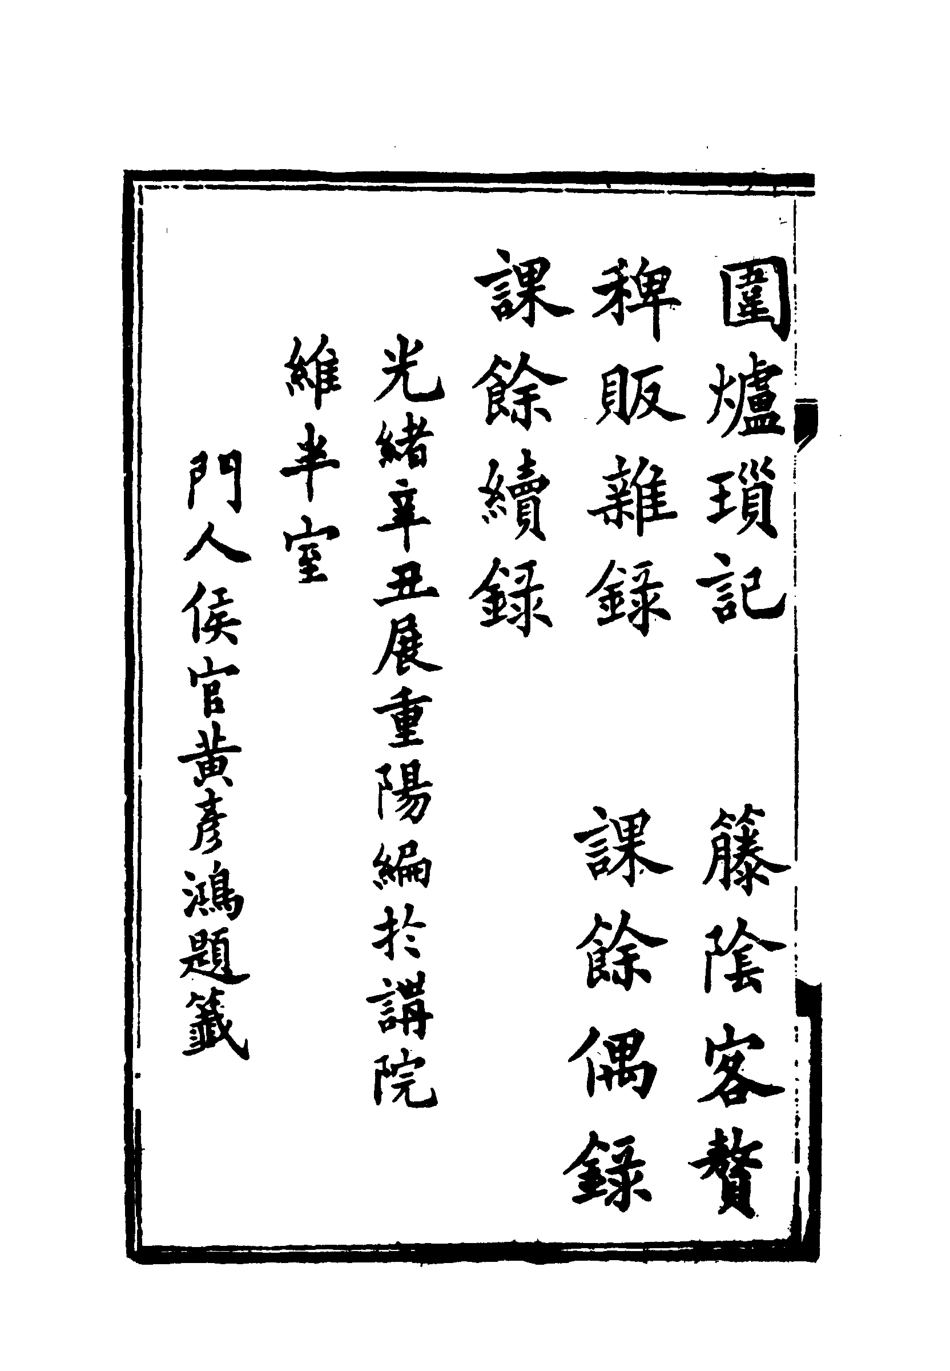 圍爐瑣記　籐陰客贅
稗販雜錄　課餘偶錄
課餘續錄
光緒辛丑展重陽編於講院
維半室
門人侯官黃彥鴻題籤